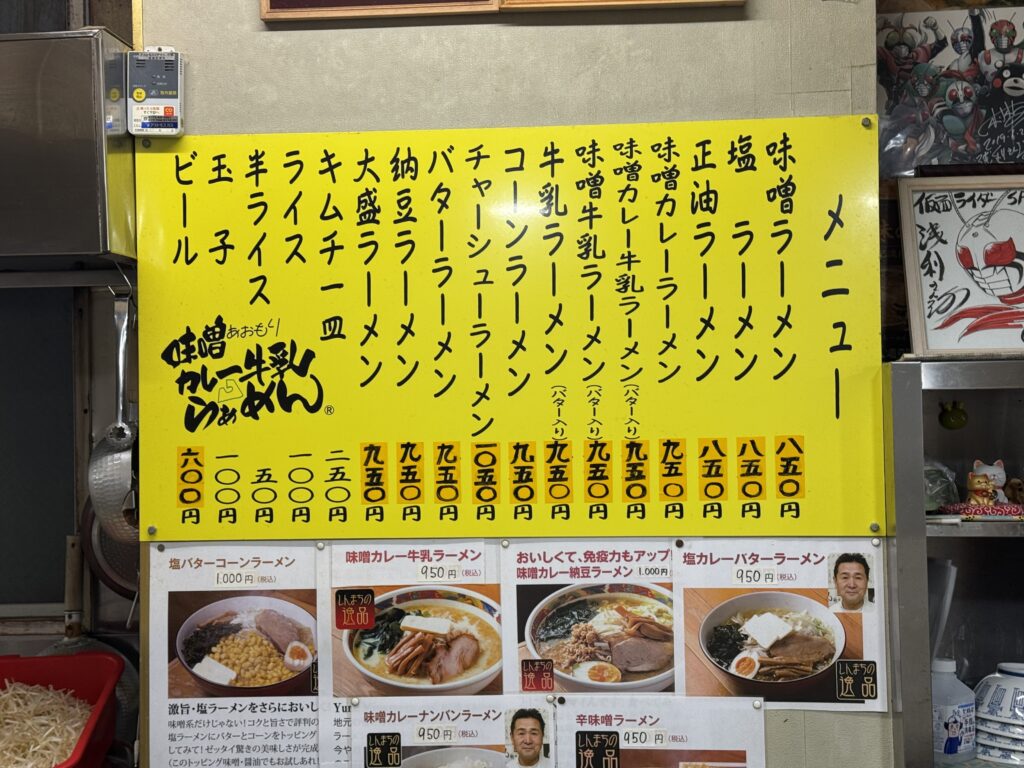 メニュー
味噌ラーメン 八五〇円
塩ラーメン 八五〇円
正油ラーメン 八五〇円
味噌カレーラーメン 九五〇円
味噌カレー牛乳ラーメン(バター入り) 九五〇円
味噌牛乳ラーメン(バター入り) 九五〇円
牛乳ラーメン(バター入り) 九五〇円
コーンラーメン 九五〇円
チャーシューラーメン 一〇五〇円
バターラーメン 九五〇円
納豆ラーメン 九五〇円
大盛ラーメン 九五〇円
キムチ一皿 二五〇円
ライス 一〇〇円
半ライス 五〇円
玉子 一〇〇円
ビール 六〇〇円
あおもり
味噌
カレー牛乳
らぁめん®
塩バターコーンラーメン
1.000円(税込)
激旨・塩ラーメンをさらにおいし
味噌系だけじゃない!コクと旨さで評判の
塩ラーメンにバターとコーンをトッピング
してみて!ゼッタイ驚きの美味しさが完成
(このトッピング味噌・醤油でもお試しあれ!
味噌カレー牛乳ラーメン
950円(税込)
しんまちの
逸品
Yur
地元
今や
おいしくて、免疫力もアップ!
味噌カレー納豆ラーメン 1.000円
しんまちの
逸品
塩カレーバターラーメン
950円(税込)
しんまちの
逸品
味噌カレーナンバンラーメン
950円(税込)
しんまちの
逸品
辛味噌ラーメン
950円(税込)
しんまちの
逸品
仮面ライダー